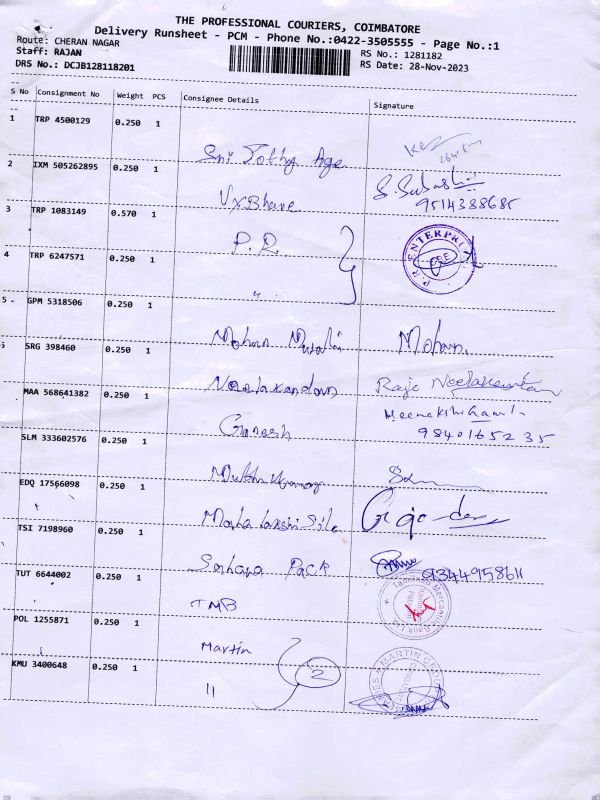 THE PROFESSIONAL COURIERS, COIMBATORE
Delivery Runsheet - PCM - Phone No.:0422-3505555 - Page No.:1
Route: CHERAN NAGAR RS No.: 1281182
Staff: RAJAN RS Date: 28-Nov-2023
DRS No.: DCJB128118201
S No Consignment No Weight PCS Consignee Details Signature
1 TRP 4500129 0.250 1 Sri Jothy Age
2 IXM 505262895 0.250 1 VxBhave
9514388685
3 TRP 1083149 0.570 1 P.R. P.R ENTERPRI
4 TRP 6247571 0.250 1 "
5 GPM 5318506 0.250 1 Mohan Mohan.
SRG 398460 0.250 1 Neelakandan Raje Neelakantan
MAA 568641382 0.250 1 Ganesh Meenakshi
9840165235
SLM 333602576 0.250 1
EDQ 17566098 0.250 1 Maha lakshi
TSI 7198960 0.250 1 Sahana Pack 9344958611
TUT 6644002 0.250 1 TMB Tamilnad Mercantile Bank Ltd
POL 1255871 0.250 1 Martin
KMU 3400648 0.250 1 11 2 MARTIN GROUP